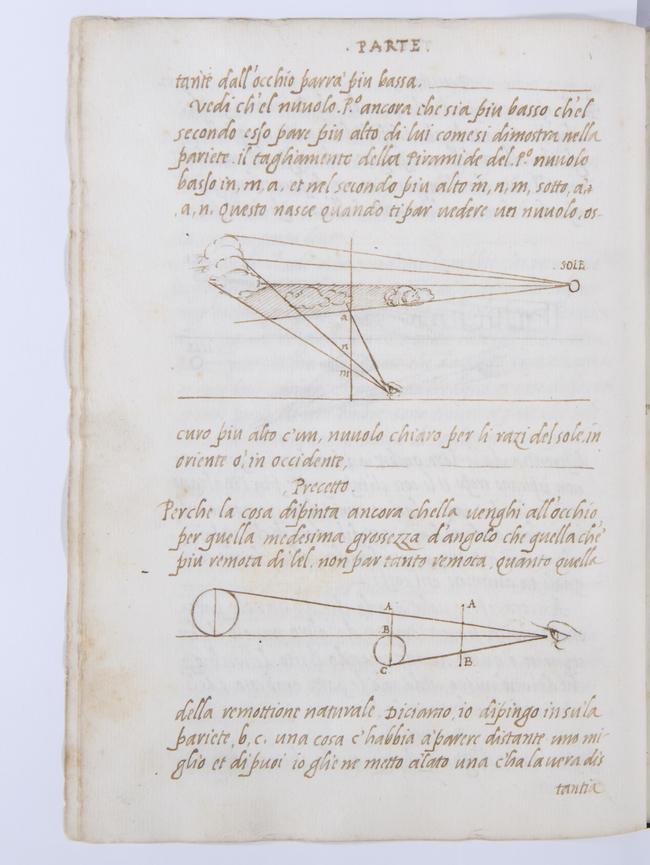 . PARTE .
tante dall'occhio parra piu bassa.
Vedi ch'el nuuolo. P.º ancora che sia piu basso ch'el
secondo esso pare piu alto di lui come si dimostra nella
pariete. il tagliamento della Piramide del. P.º nuuolo
basso in, m, a, et nel secondo piu alto in, n, m, sotto, a,
, a, n. Questo nasce quando ti par vedere un nuuolo, os-
SOLE
a
n
m
curo piu alto c'un, nuuolo chiaro per li razi del sole, in
oriente o, in occidente,
, Precetto.
Perche la cosa dipinta ancora chella venghi all'occhio,
per quella medesima grossezza d'angolo che quella che
piu remota di lei. non par tanto remota, quanto quella
A
A
B
C
B
della remottione naturale. Diciamo, io dipingo in su la
pariete, b, c, una cosa c'habbia a parere distante uno mi-
glio et di puoi io gliene metto alato una c'ha la vera dis
tantia